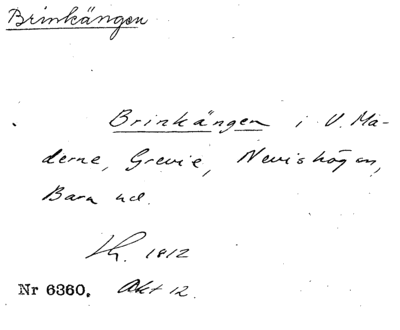 Brinkängen
Brinkängen i V. Ma-
derne, Grevie, Nevishögen,
Bara hd.
1812
Nr 6360. Akt 12.